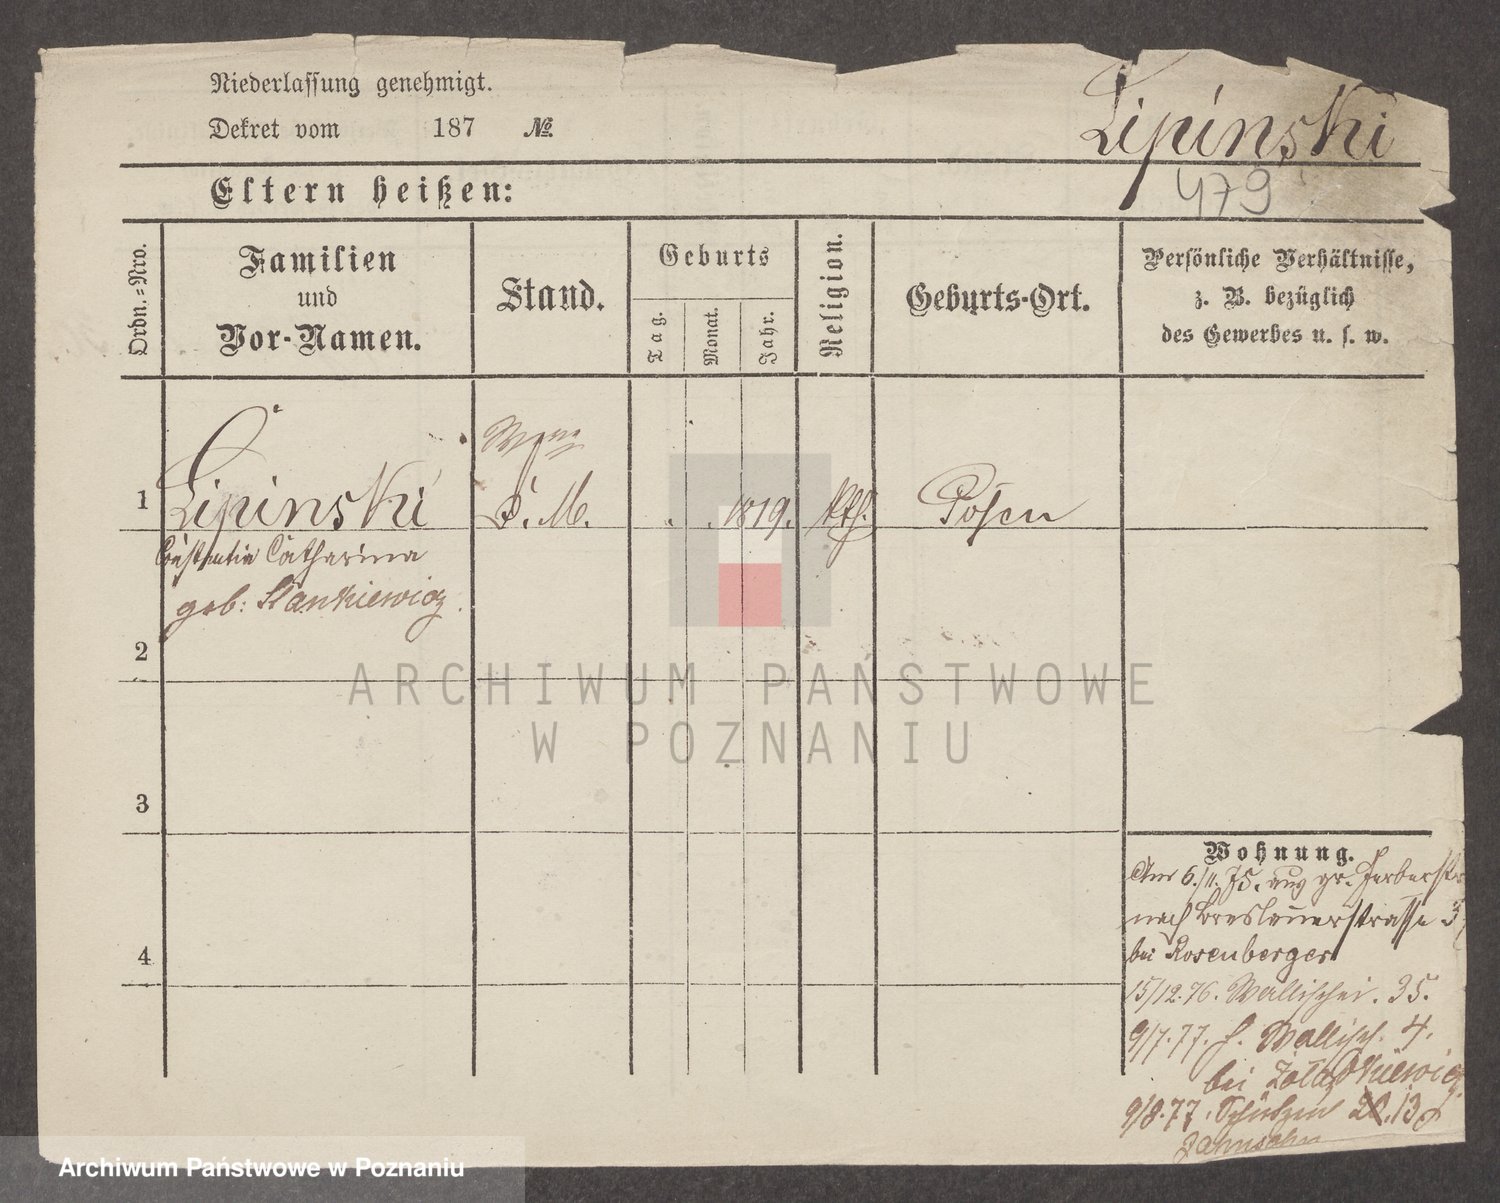 Niederlassung genehmigt.
Dekret vom 187 №.
Lipinski
479
Eltern heißen:
Ordn.-Nro.
Familien
und
Vor-Namen.
Stand.
Geburts
Tag.
Monat.
Jahr.
Religion.
Geburts-Ort.
Persönliche Verhältnisse,
z. B. bezüglich
des Gewerbes u. s. w.
1 Lipinski D. M. 1819. kth. Posen
Constantia Catharina
geb: Stankiewicz
2
3
4
Wohnung.
Am 6./11. 75. aus gr. Gerberstr
nach Breslauerstrasse
bei Rosenberger
15/12.76. Wallischei. 35.
9/7.77. Wallisch. 4.
bei
9/8.77. Schützen 20. 13
ARCHIWUM PAŃSTWOWE
W POZNANIU
Archiwum Państwowe w Poznaniu